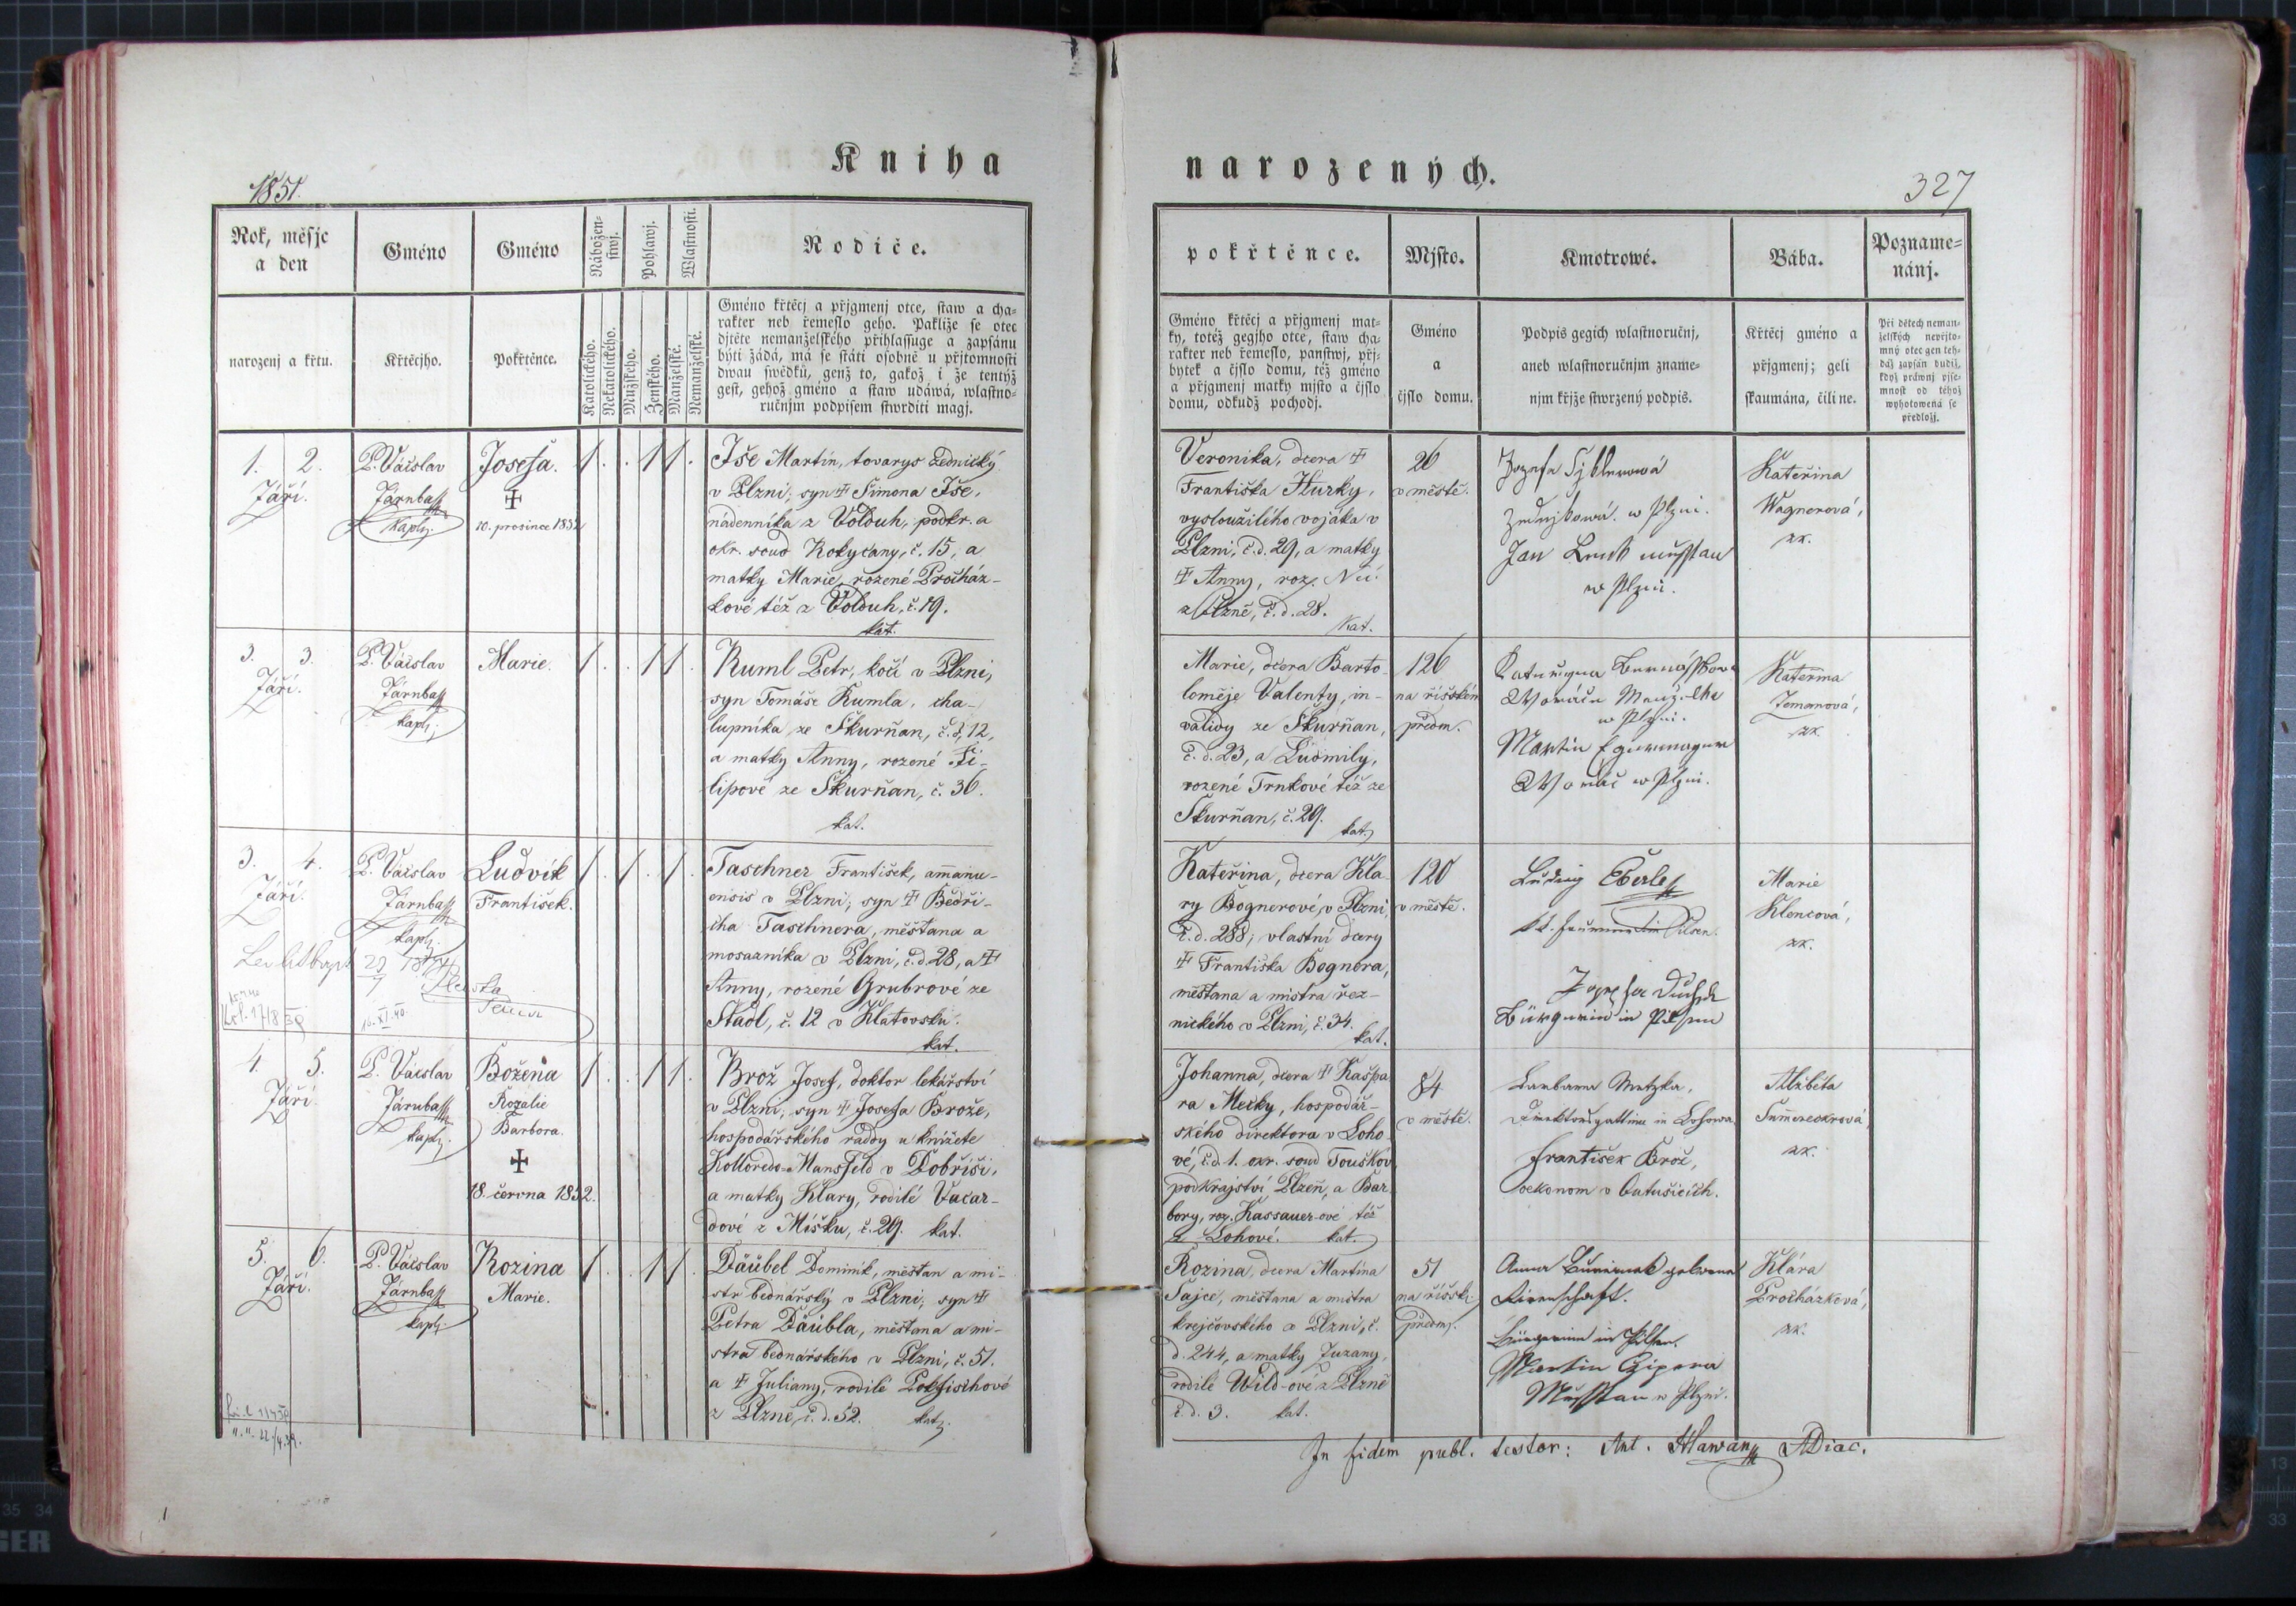 Kniha
1851.
Rok, měsjc
a den
Gméno
Gméno
Nábožen-
stwj.
Pohlawj.
Wlastnosti.
Rodiče.
narozenj a křtu.
Křtěcjho.
Pokřtěnce.
Katolického.
Nekatolického.
Mužského.
Ženského.
Manželské.
Nemanželské.
Gméno křtěcj a přjgmenj otce, staw a cha-
rakter neb řemeslo geho. Pakliže se otec
djtěte nemanželského přihlassuge a zapsánu
býti žádá, má se státi osobně u přjtomnosti
dwau swědků, genž to, gakož i že tentýž
gest, gehož gméno a staw udáwá, wlastno-
ručnjm podpisem stwrditi magj.
1. 2.
Září.
P. Václav
Járnbach
kapl.
Josefa.
✝
10. prosince 1852
1 . . 1 1 .
Iše Martin, tovaryš zednický
v Plzni; syn ✝ Šimona Iše,
nádenníka z Volduh, podkr. a
okr. soud Rokycany, č. 15, a
matky Marie, rozené Procház-
kové též z Volduh, č. 19.
kat.
3. 3.
Září.
P. Václav
kapl.
Marie.
1 . . 1 1 .
Kuml Petr, kočí v Plzni,
syn Tomáše Kumla, cha-
lupníka ze Škurňan, č. d. 12,
a matky Anny, rozené Fi-
lipové ze Škurňan, č. 36.
kat.
3. 4.
Září.
P. Václav
kapl.
Ludvík
František.
1 . 1 . 1 .
Taschner František, amanu-
ensis v Plzni; syn ✝ Bedři-
cha Taschnera, měštana a
mosazníka v Plzni, č. d. 28, a ✝
Anny, rozené Grubrové ze
Stadl, č. 12 v Klatovsku.
kat.
4. 5.
Září
P. Václav
kapl.
Božena
Rozalie
Barbora.
✝
18. června 1852.
1 . . 1 1 .
Brož Josef, doktor lékařství
v Plzni; syn ✝ Josefa Brože,
hospodářského raddy u knížete
Kolloredo-Mansfeld v Dobříši,
a matky Klary, rodilé Vacar-
dové z Míšku, č. 29. kat.
5. 6.
Září.
P. Václav
kapl.
Rozina
Marie.
1 . . 1 1 .
Däubel Dominik, měštan a mi-
str bednářský v Plzni, syn ✝
Petra Däubla, měštana a mi-
stra bednářského v Plzni, č. 51.
a ✝ Juliany, rodilé
z Plzně, č. d. 52. kat.
narozených.
327
pokřtěnce.
Mjsto.
Kmotrowé.
Bába.
Pozname-
nánj.
Gméno křtěcj a přjgmenj mat-
ky, totéž gegjho otce, staw cha-
rakter neb řemeslo, panstwj, přj-
bytek a čjslo domu, též gméno
a přjgmenj matky mjsto a čjslo
domu, odkudž pochodj.
Gméno
a
čjslo domu.
Podpis gegich wlastnoručnj,
aneb wlastnoručnjm zname-
njm křjže stwrzený podpis.
Křtěcj gméno a
přjgmenj; geli
skaumána, čili ne.
Při dětech neman-
želských nepřjto-
mný otec gen teh-
dáž zapsán budiž,
když práwnj pjse-
mnost od téhož
wyhotowená se
předložj.
Veronika, dcera ✝
Františka Hurky,
vysloužilého vojáka v
Plzni, č. d. 29, a matky
✝ Anny, roz.
z Plzně, č. d. 28.
kat.
26
v městě.
w Plzni.
Jan
w Plzni.
Kateřina
Wagnerová,
zk.
Marie, dcera Barto-
loměje Valenty, in-
validy ze Škurňan,
č. d. 23, a Ludmily,
rozené Trnkové též ze
Škurňan, č. 29.
kat.
126
na říšském
předm.
w Plzni.
Martin
w Plzni.
Kateřina
Zemanová,
zk.
Kateřina, dcera Kla-
ry Bognerové, v Plzni
č. d. 288; vlastní dcery
✝ Františka Bognera,
měštana a mistra řez-
nického v Plzni, č. 34.
kat.
120
v městě.
Ludwig Eberle
Pilsen.
Bürgerin in Pilsen
Marie
Klencová,
zk.
Johanna, dcera ✝ Kašpa-
ra Mecky, hospodář-
ského direktora v Loho-
vé, č. d. 1. okr. soud Touškov
podkrajství Plzeň, a Bar-
bory, roz. Kassauer-ové též
z Lohové. kat.
84
v městě.
Barbara Metzka,
Direktorsgattin in Lohowa.
František Brož,
oekonom v
Alžběta
zk.
Rozina, dcera Martina
Šajce, měštana a mistra
krejčovského v Plzni, č.
d. 244, a matky Zuzany,
rodilé Wild-ové z Plzně
č. d. 3. kat.
51
na říšsk.
předm.
Anna
Bürgerin in Pilsen.
Martin
w Plzni.
Klára
Procházková,
zk.
In fidem publ. testor: Ant. Hlawan ADiac.